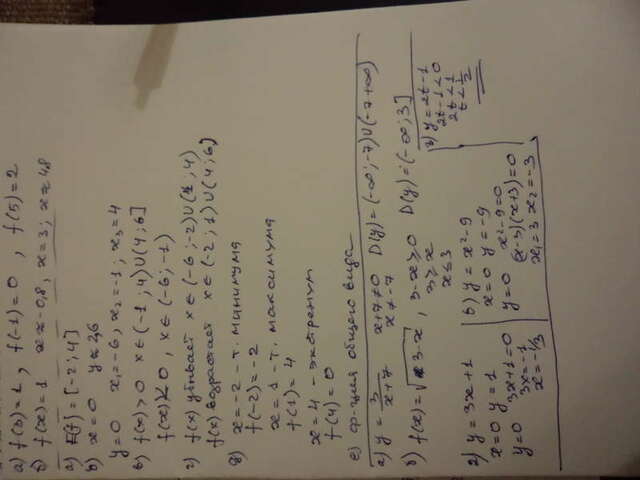 а) f(3)=1, f(-1)=0, f(5)=2
б) f(x)=1 x≈-0,8, x=3; x≈4,8
а) E(f)=[-2;4]
б) x=0 y≈2,6
y=0 x₁=-6, x₂=-1, x₃=4
в) f(x)>0 x∈(-1;4)∪(4;6]
f(x)<0, x∈(-6;-1)
г) f(x) убывает x∈(-6;-2)∪(1;4)
f(x) возрастает x∈(-2;1)∪(4;6)
д) x=-2 - т. минимума
f(-2)=-2
x=1 - т. максимума
f(1)=4
x=4 - экстремум
f(4)=0
е) ф-ция общего вида
а) y=3/(x+7) x+7≠0 D(y)=(-∞;-7)∪(-7+∞)
x≠-7
б) f(x)=√(3-x), 3-x≥0 D(y)=(-∞;3]
3≥x
x≤3
2) y=3x+1
x=0 y=1
y=0 3x+1=0
3x=-1
x=-1/3
б) y=x²-9
x=0 y=-9
y=0 x²-9=0
(x-3)(x+3)=0
x₁=3 x₂=-3
y=2t-1
2t-1<0
2t<1
t<1/2